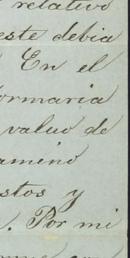 relativo
este debia
En el
ormaria
valuo de
amino
stos y
. Por mi